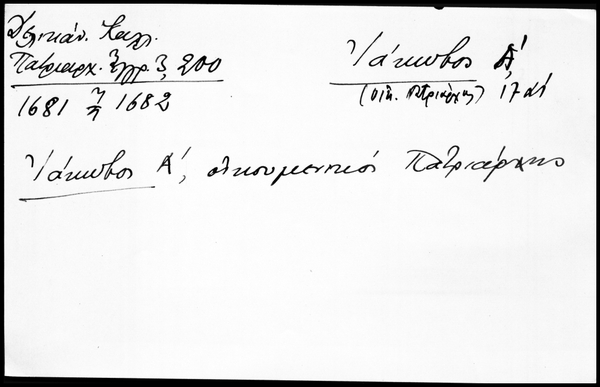 Δελικάν. Καλλ.
Πατριαρχ. Ἔγγρ. 3, 200
1681 ἢ 1682
Ἰάκωβος Α΄
(οἰκ. Πατριάρχης) 17 αἰ
Ἰάκωβος Α΄, οἰκουμενικός Πατριάρχης